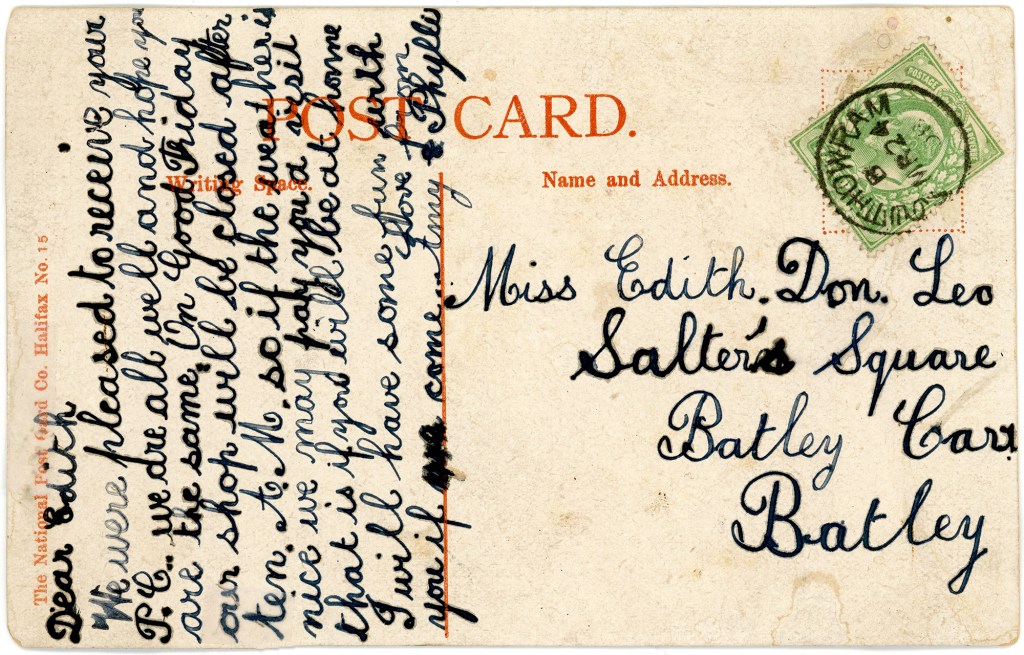 POST CARD.
Writing Space.
Name and Address.
The National Post Card Co. Halifax No. 15
Dear Edith
We were pleased to receive your
P.C. we are all well and hope you
are the same. On Good Friday
our shop will be closed after
ten A. M. so if the weather is
nice we may pay you a visit
that is if you will be at home
I will have some fun with
you if come. Love from
Amy & Phyllis
Miss Edith. Don. Leo
Salter's Square
Batley Carr
Batley
POSTAGE
SOUTHOWRAM
B
MR 24